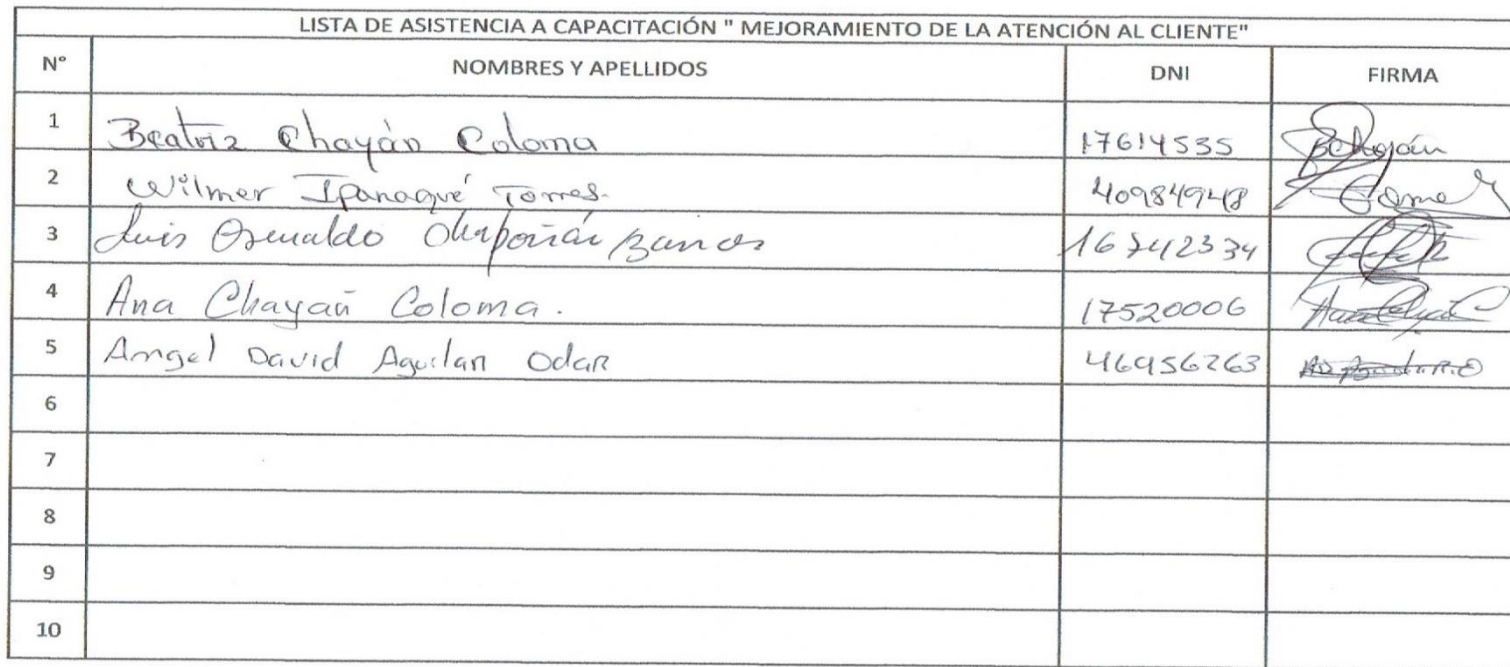 LISTA DE ASISTENCIA A CAPACITACIÓN " MEJORAMIENTO DE LA ATENCIÓN AL CLIENTE"
N° NOMBRES Y APELLIDOS DNI FIRMA
1 Beatriz Chayán Coloma 17614535 BChayán
2 Wilmer Ipanaqué Torres. 40984948
3 Luis Oswaldo
4 Ana Chayañ Coloma. 17520006
5 Angel David Aguilar Odar 46956263
6
7
8
9
10